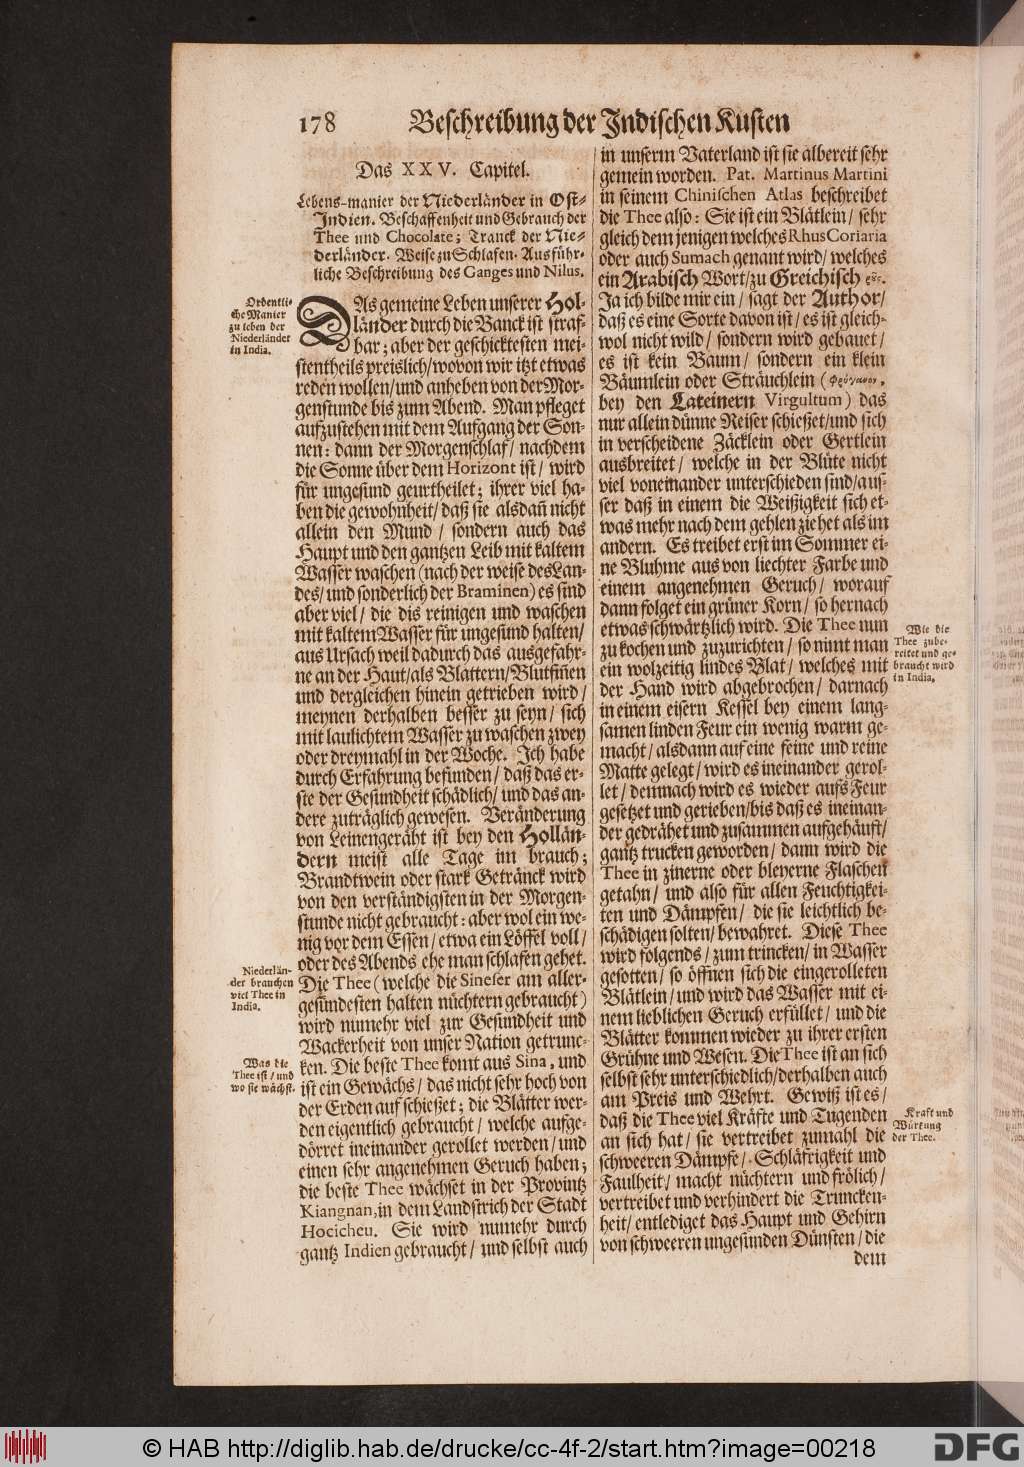 178 Beschreibung der Indischen Kusten
Das XXV. Capitel.
Lebens-manier der Niederländer in Ost-
Indien. Beschaffenheit und Gebrauch der
Thee und Chocolate; Tranck der Nie-
derländer. Weise zu Schlafen. Ausführ-
liche Beschreibung des Ganges und Nilus.
Ordentli-
che Manier
zu leben der
Niederländer
in India.
DAs gemeine Leben unserer Hol-
länder durch die Banck ist straf-
bar; aber der geschicktesten mei-
stentheils preislich/wovon wir itzt etwas
reden wollen/und anheben von der Mor-
genstunde bis zum Abend. Man pfleget
aufzustehen mit dem Aufgang der Son-
nen: dann der Morgenschlaf/ nachdem
die Sonne über dem Horizont ist/ wird
für ungesund geurtheilet; ihrer viel ha-
ben die gewohnheit/ daß sie alsdañ nicht
allein den Mund / sondern auch das
Haupt und den gantzen Leib mit kaltem
Wasser waschen (nach der weise des Lan-
des/ und sonderlich der Braminen) es sind
aber viel/ die dis reinigen und waschen
mit kaltem Wasser für ungesund halten/
aus Ursach weil dadurch das ausgefahr-
ne an der Haut/als Blattern/Blutfiñen
und dergleichen hinein getrieben wird/
meynen derhalben besser zu seyn/ sich
mit laulichtem Wasser zu waschen zwey
oder dreymahl in der Woche. Ich habe
durch Erfahrung befunden/ daß das er-
ste der Gesundheit schädlich/ und das an-
dere zuträglich gewesen. Veränderung
von Leinengeräht ist bey den Hollän-
dern meist alle Tage im brauch;
Brandtwein oder stark Getränck wird
von den verständigsten in der Morgen-
stunde nicht gebraucht: aber wol ein we-
nig vor dem Essen/ etwa ein Löffel voll/
oder des Abends ehe man schlafen gehet.
Niederlän-
der brauchen
viel Thee in
India.
Die Thee (welche die Sineser am aller-
gesündesten halten nüchtern gebraucht)
wird nunmehr viel zur Gesundheit und
Wackerheit von unser Nation getrunc-
Was die
Thee ist/ und
wo sie wächst.
ken. Die beste Thee komt aus Sina, und
ist ein Gewächs/ das nicht sehr hoch von
der Erden auf schießet; die Blätter wer-
den eigentlich gebraucht/ welche aufge-
dörret ineinander gerollet werden/ und
einen sehr angenehmen Geruch haben;
die beste Thee wächset in der Provintz
Kiangnan, in dem Landstrich der Stadt
Hocicheu. Sie wird nunmehr durch
gantz Indien gebraucht/ und selbst auch
in unserm Vaterland ist sie albereit sehr
gemein worden. Pat. Martinus Martini
in seinem Chinischen Atlas beschreibet
die Thee also: Sie ist ein Blätlein/ sehr
gleich dem jenigen welches Rhus Coriaria
oder auch Sumach genant wird/ welches
ein Arabisch Wort/zu Greichisch &c.
Ja ich bilde mir ein/ sagt der Author/
daß es eine Sorte davon ist/ es ist gleich-
wol nicht wild/ sondern wird gebauet/
es ist kein Baum/ sondern ein klein
Bäumlein oder Sträuchlein (
bey den Lateinern Virgultum) das
nur allein dünne Reiser schießet/und sich
in verscheidene Zäcklein oder Gertlein
ausbreitet/ welche in der Blüte nicht
viel voneinander unterschieden sind/aus-
ser daß in einem die Weißigkeit sich et-
was mehr nach dem gehlen ziehet als im
andern. Es treibet erst im Sommer ei-
ne Bluhme aus von liechter Farbe und
einem angenehmen Geruch/ worauf
dann folget ein grüner Korn/ so hernach
etwas schwärtzlich wird. Die Thee nun
Wie die
Thee zube-
reitet und ge-
braucht wird
in India.
zu kochen und zuzurichten/ so nimt man
ein wolzeitig lindes Blat/ welches mit
der Hand wird abgebrochen/ darnach
in einem eisern Kessel bey einem lang-
samen linden Feur ein wenig warm ge-
macht/ alsdann auf eine feine und reine
Matte gelegt/ wird es ineinander gerol-
let/ demnach wird es wieder aufs Feur
gesetzet und gerieben/bis daß es ineinan-
der gedrähet und zusammen aufgehäuft/
gantz trucken geworden/ dann wird die
Thee in zinerne oder bleyerne Flaschen
getahn/ und also für allen Feuchtigkei-
ten und Dämpfen/ die sie leichtlich be-
schädigen solten/ bewahret. Diese Thee
wird folgends/ zum trincken/ in Wasser
gesotten/ so öffnen sich die eingerolleten
Blätlein/ und wird das Wasser mit ei-
nem lieblichen Geruch erfüllet/ und die
Blätter kommen wieder zu ihrer ersten
Grühne und Wesen. Die Thee ist an sich
selbst sehr unterschiedlich/derhalben auch
am Preis und Wehrt. Gewiß ist es/
daß die Thee viel Kräfte und Tugenden
Kraft und
Würkung
der Thee.
an sich hat/ sie vertreibet zumahl die
schweeren Dämpfe/ Schläfrigkeit und
Faulheit/ macht nüchtern und frölich/
vertreibet und verhindert die Truncken-
heit/ entlediget das Haupt und Gehirn
von schweeren ungesunden Dünsten/ die
dem
© HAB http://diglib.hab.de/drucke/cc-4f-2/start.htm?image=00218
DFG